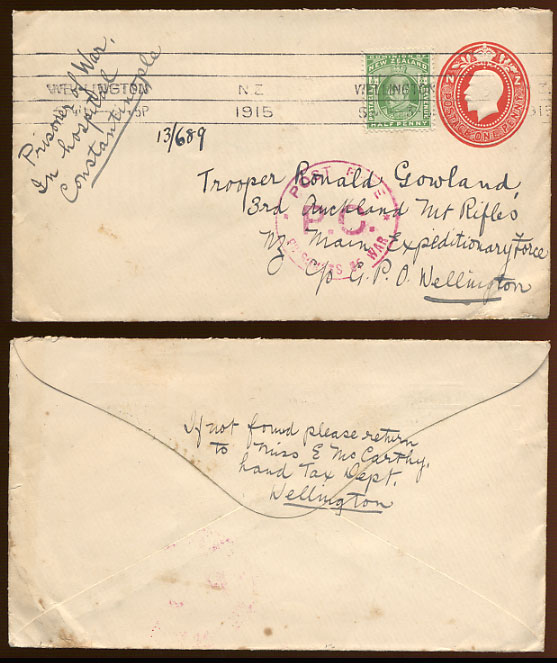 Prisoner of War.
In hospital
Constantinople
WELLINGTON
NZ
1915
WELLINGTON
DOMINION OF
NEW ZEALAND
HALF PENNY
N Z
POSTAGE ONE PENNY
13/689
POST
P.C.
OF WAR
Trooper Ronald Gowland,
3rd Auckland Mt Rifles
NZ Main Expeditionary Force
C/o G.P.O. Wellington
If not found please return
to Miss E McCarthy,
Land Tax Dept.
Wellington